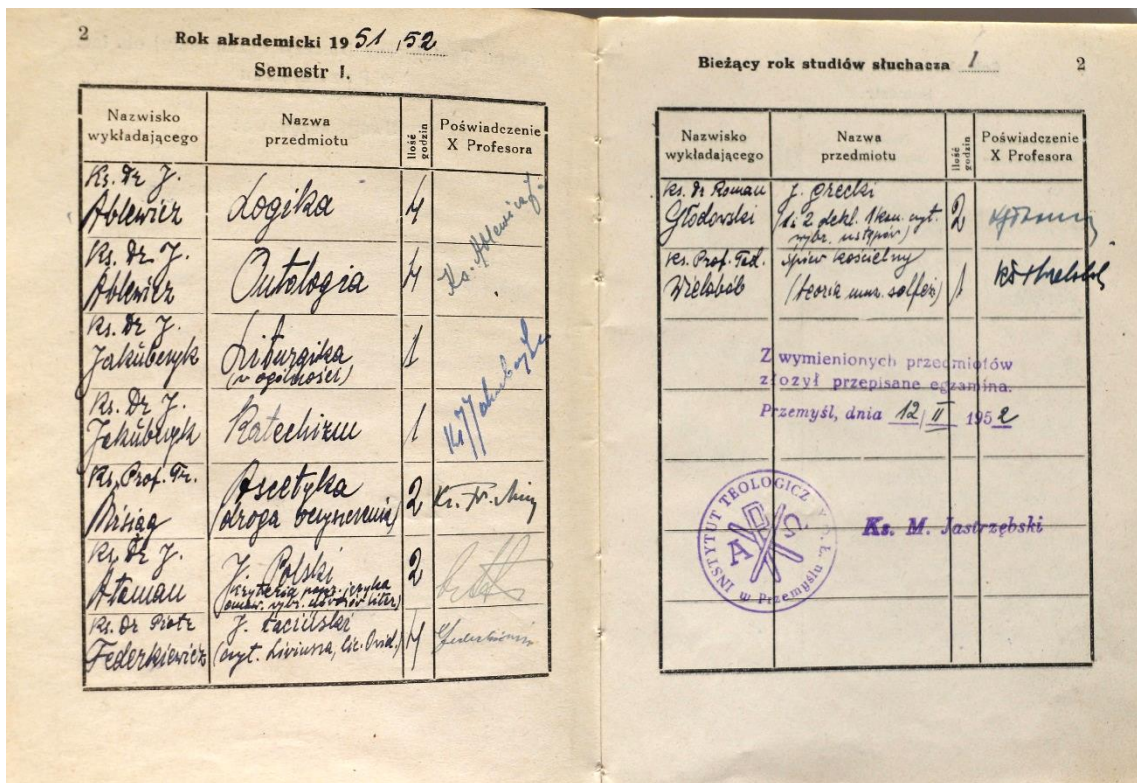 2
Rok akademicki 1951/52
Semestr I.
Nazwisko wykładającego
Nazwa przedmiotu
ilość godzin
Poświadczenie X Profesora
Ks. Dr J. Ablewicz
Logika
4
Ks. Ablewicz J.
Ks. Dr. J. Ablewicz
Ontologia
4
Ks. Dr J. Jakubczyk
Liturgika
(w ogólności)
1
Ks. Dr. J. Jakubczyk
Katechizm
1
Ks. Prof. Fr. Misiąg
Ascetyka
(droga oczyszczenia)
2
Ks. Dr J. Ataman
J. Polski
2
Ks. Dr Piotr Federkiewicz
J. Łaciński
(czyt. Liviusza, Cic. Owid.)
4
Bieżący rok studiów słuchacza I
2
Nazwisko wykładającego
Nazwa przedmiotu
ilość godzin
Poświadczenie X Profesora
Ks. Dr Roman Głodowski
J. grecki
2
Ks. Prof. Tad. Wielobób
śpiew kościelny
(teoria muz. solfeż)
1
Z wymienionych przedmiotów
złożył przepisane egzamina.
Przemyśl, dnia 12/II 1952
INSTYTUT TEOLOGICZNY
w Przemyślu
Ks. M. Jastrzębski